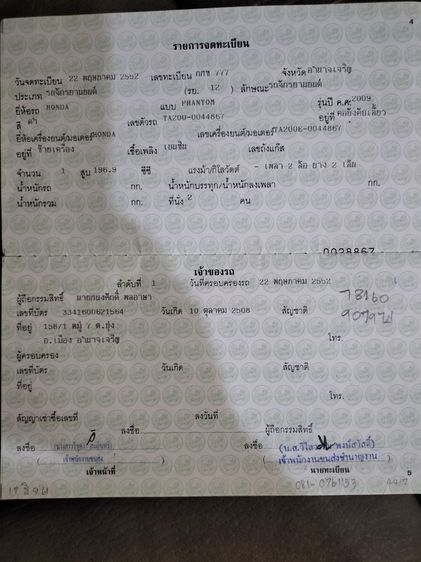 4
รายการจดทะเบียน
วันจดทะเบียน 22 พฤษภาคม 2552 เลขทะเบียน กกข 777 จังหวัด อำนาจเจริญ
ประเภท รถจักรยานยนต์ (รย. 12 ) ลักษณะ รถจักรยานยนต์
ยี่ห้อรถ HONDA แบบ PHANTOM รุ่นปี ค.ศ. 2009
สี ดำ เลขตัวรถ TA200-0044867 อยู่ที่ คอยึดคันเลี้ยว
ยี่ห้อเครื่องยนต์/มอเตอร์ HONDA เลขเครื่องยนต์/มอเตอร์ TA200E-0044867
อยู่ที่ ซ้ายเครื่อง เชื้อเพลิง เบนซิน เลขถังแก๊ส
จำนวน 1 สูบ 196.9 ซีซี แรงม้า/กิโลวัตต์ - เพลา 2 ล้อ ยาง 2 เส้น
น้ำหนักรถ กก. น้ำหนักบรรทุก/น้ำหนักลงเพลา กก.
น้ำหนักรวม กก. ที่นั่ง 2 คน
0028867
เจ้าของรถ
ลำดับที่ 1 วันที่ครอบครองรถ 22 พฤษภาคม 2552
ผู้ถือกรรมสิทธิ์
เลขที่บัตร 3341600621564 วันเกิด 10 ตุลาคม 2508 สัญชาติ
ที่อยู่ 158/1 หมู่ 7 ต.บุ่ง โทร.
อ.เมือง อำนาจเจริญ
ผู้ครอบครอง
เลขที่บัตร วันเกิด สัญชาติ
ที่อยู่
โทร.
สัญญาเช่าซื้อเลขที่ ลงวันที่ ผู้ถือกรรมสิทธิ์
ลงชื่อ ลงชื่อ
เจ้าพนักงานขนส่ง เจ้าพนักงานขนส่งชำนาญงาน
เจ้าหน้าที่ นายทะเบียน
5
081-0761153